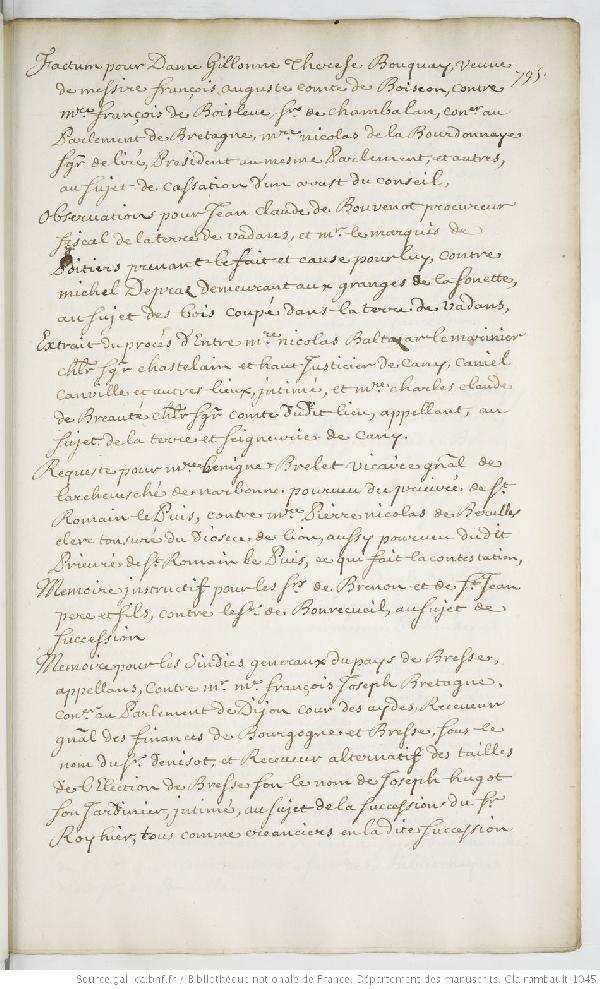 795.
Factum pour Dame Gillonne Therese Bouquay, veuve
de messire françois auguste comte de Boiseon, contre
mre françois de Boisleve sr. de chambalan, coner au
Parlement de Bretagne, mre nicolas de la Bourdonnaye
sgr de liré, President au mesme Parlement, et autres,
au sujet de cassation d'un arrest du conseil,
Observations pour Jean claude de Bouvenot procureur
fiscal de la terre de vadans, et mr. le marquis de
Poitiers prenant le fait et cause pour luy, contre
michel Depraz demeurant aux granges de la sonette,
au sujet des bois coupé dans la terre de vadans,
Extrait du procés d'Entre mre nicolas Baltazar le marinier
chlr sgr chastelain et haut Justicier de Cany, Caniel
Canville et autres lieux, intimé, et mre charles claude
de Breauté chlr sgr comte dudit lieu, appellant, au
sujet de la terre et seigneurie de Cany.
Requeste pour mre benigne Brelet vicaire gnal de
l'archevesché de narbonne pourveu du prieuré de St.
Romain le Puis, contre mre Pierre nicolas de Berulles
clerc tonsuré du Diocese de lion, aussy pourveu dudit
Prieuré de St. Romain le Puis, ce qui fait la contestation,
Memoire instructif pour les srs de Brenon et de St. Jean
pere et fils, contre le sr. de Bourecueil, au sujet de
succession
Memoire pour les Sindics generaux du pays de Bresse,
appellans, contre mr. mre françois Joseph Bretagne,
coner au Parlement de Dijon cour des aydes, Receveur
gnal des finances de Bourgogne et Bresse, sous le
nom du sr. denisot, et Receveur alternatif des tailles
de l'Election de Bresse sou le nom de Joseph hugot
son Jardinier, intimé, au sujet de la succession du sr
Royhier, tous comme creanciers en la dite succession
Source gallica.bnf.fr / Bibliothèque nationale de France. Département des manuscrits. Clairambault 1045